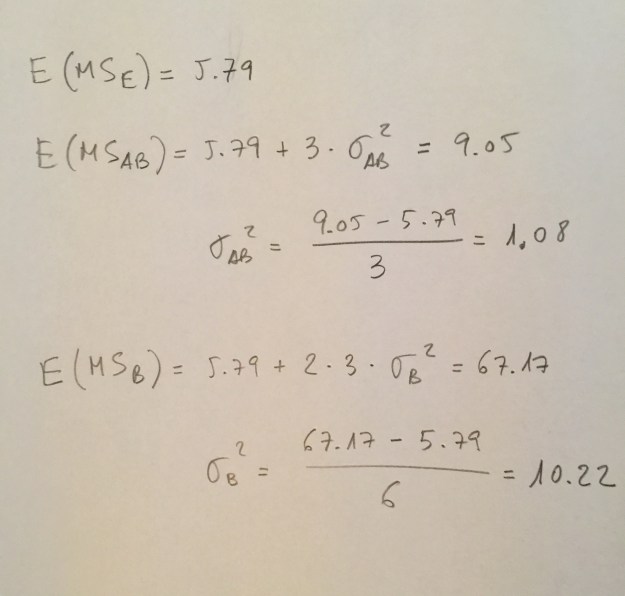 E(MS_E) = 5.79
E(MS_AB) = 5.79 + 3 · σ_AB² = 9.05
σ_AB² = (9.05 − 5.79)/3 = 1,08
E(MS_B) = 5.79 + 2 · 3 · σ_B² = 67.17
σ_B² = (67.17 − 5.79)/6 = 10.22